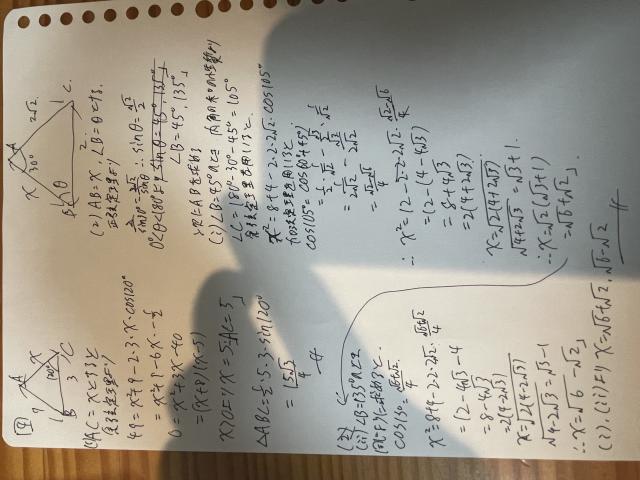 [4]
A
7
x
120°
B 3 C
(1) AC = xとすると
余弦定理より
49 = x²+9-2・3・x・cos120°
= x²+9-6x・-½
0 = x²+3x-40
= (x+8)(x-5)
x>0より x=5 ∴AC=5
△ABC = ½・5・3・sin120°
= 15√3/4
A
x 30° 2√2
B θ 2 C
(2) AB = x ∠B = θとする。
正弦定理より
2/sin30° = 2√2/sinθ ∴ sinθ = √2/2
0°<θ<180°より sinθ=45°,135°
∠B = 45°, 135°
次にABを求める
(i) ∠B=45°のとき 内角の和の性質より
∠C = 180°-30°-45° = 105°
余弦定理を用いると
x² = 8+4-2・2・2√2・cos105°
cos105° = cos(60°+45°)
= ½・1/√2 - √3/2・1/√2
= 1/2√2 - √3/2√2
= √2-√6/4
∴ x² = 12-2・2・2√2・√2-√6/4
= 12-(4-4√3)
= 8+4√3
= 2(4+2√3)
x = √2(4+2√3)
√4+2√3 = √3+1
∴ x = √2(√3+1)
= √6+√2
(ii) ∠B=135°のとき
x² = 8+4-2・2・2√2・√6+√2/4
= 12-4√3-4
= 8-4√3
= 2(4-2√3)
x = √2(4-2√3)
√4-2√3 = √3-1
∴ x = √6-√2
(i),(ii)より x = √6+√2, √6-√2